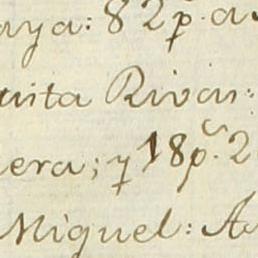 aya: 82 p. a
uita Rivas:
era; y 18 p.s 2
Miguel: A